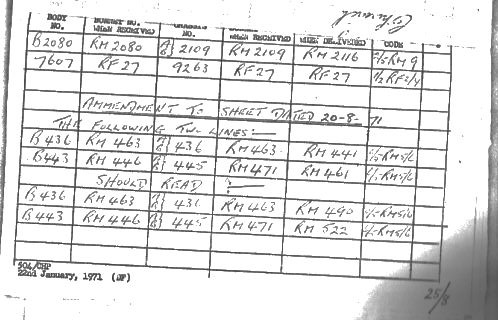 BODY NO. BONNET NO. WHEN RECEIVED CHASSIS NO. WHEN RECEIVED WHEN DELIVERED CODE
B2080 RM 2080 2109 RM 2109 RM 2116 RM 9
7607 RF 27 9263 RF 27 RF 27
AMMENDMENT TO SHEET DATED 20-8-71
THE FOLLOWING TWO LINES:-
B436 RM 463 436 RM 463 RM 441 RM5/6
B443 RM 446 445 RM 471 RM 461 RM5/6
SHOULD READ :-
B436 RM 463 436 RM 463 RM 490 RM5/6
B443 RM 446 445 RM 471 RM 522 RM5/6
504/CHP
22nd January, 1971 (DF)
25/8